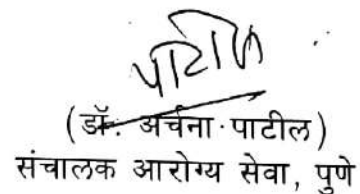 पाटील
(डॉ. अर्चना पाटील)
संचालक आरोग्य सेवा, पुणे